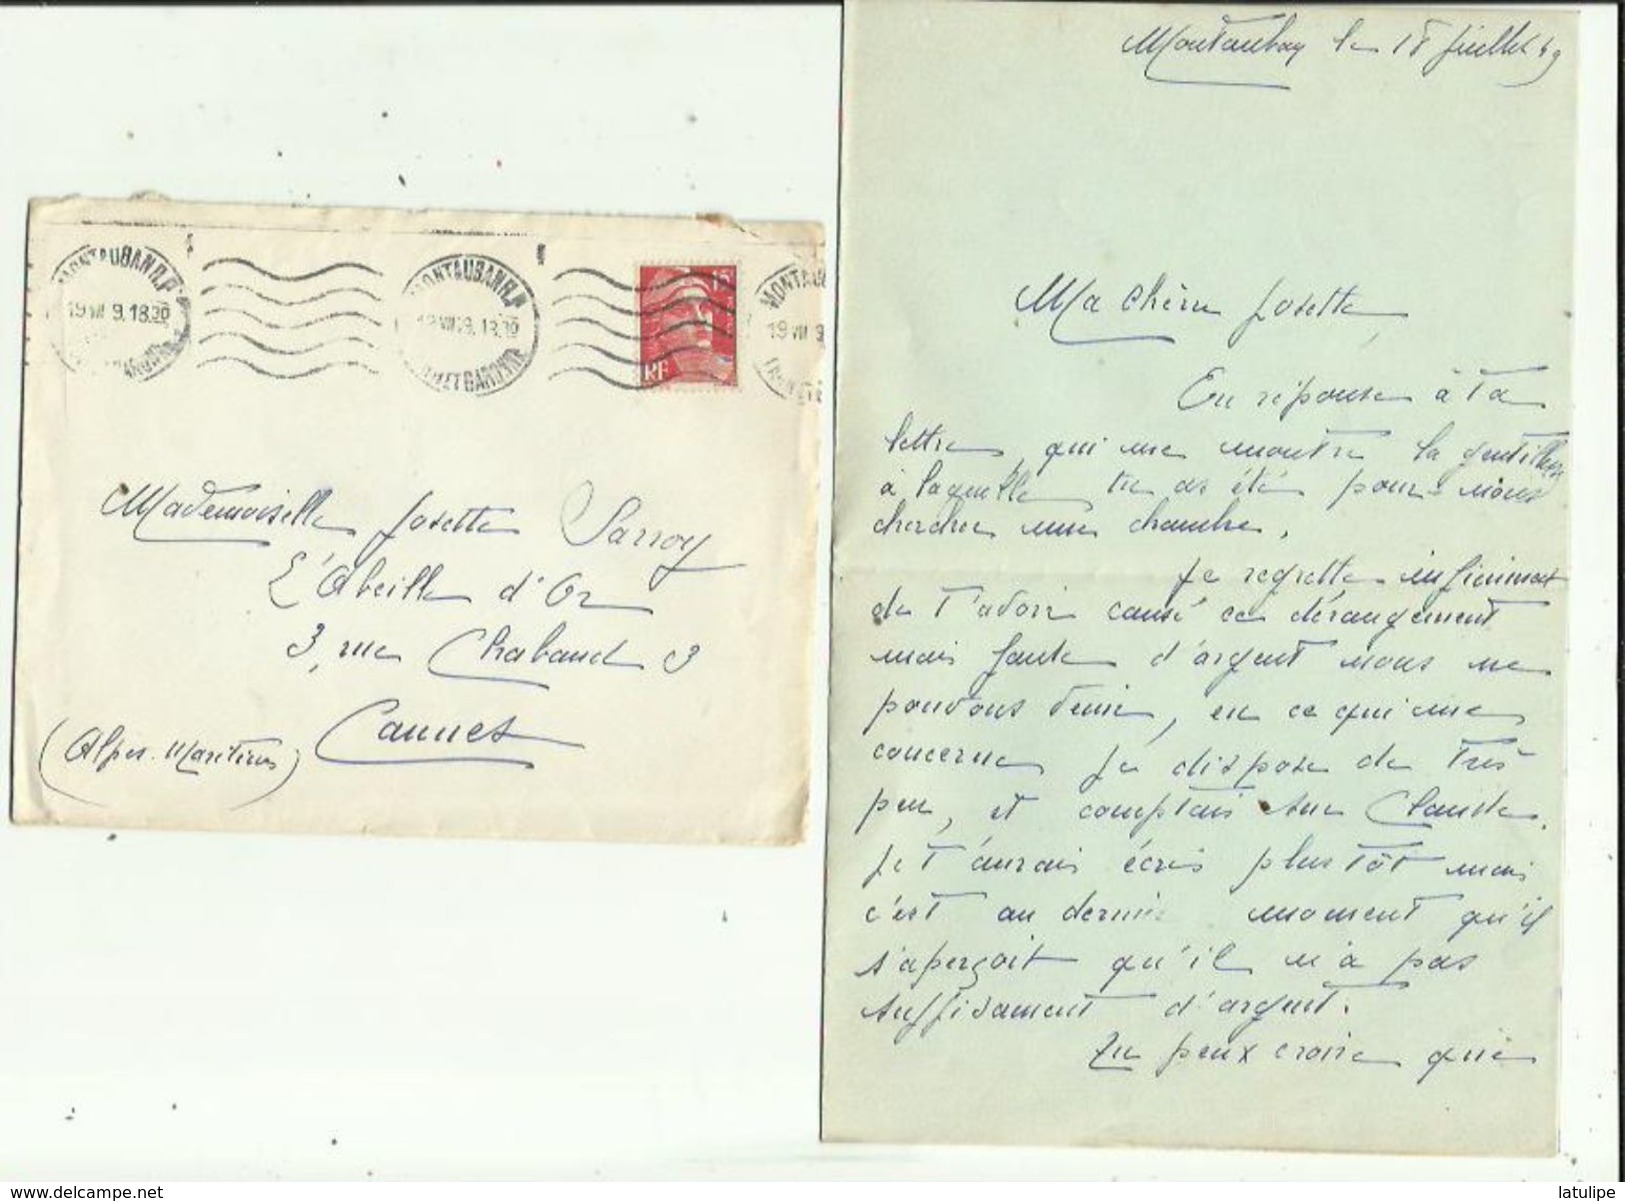 MONTAUBAN R.P.
19 VII 9. 18.30
MONTAUBAN R.P.
18.30
TARN ET GARONNE
15F
RF
19 VII 9
Mademoiselle Josette Sarroy
L'Abeille d'Or
3, rue Chabaud 3
Cannes
(Alpes-Maritimes)
Montauban le 18 Juillet 49
Ma chère Josette,
En réponse à ta
lettre, qui me montre la gentillesse
à laquelle tu as été pour nous
chercher une chambre.
Je regrette infiniment
de t'avoir causé ce dérangement
mais faute d'argent nous ne
pouvons venir, en ce qui me
concerne je dispose de très
peu, et comptais sur Claude.
Je t'aurais écris plus tôt mais
c'est au dernier moment qu'il
s'aperçoit qu'il n'a pas
suffisament d'argent.
Tu peux croire que
latulipe
www.delcampe.net